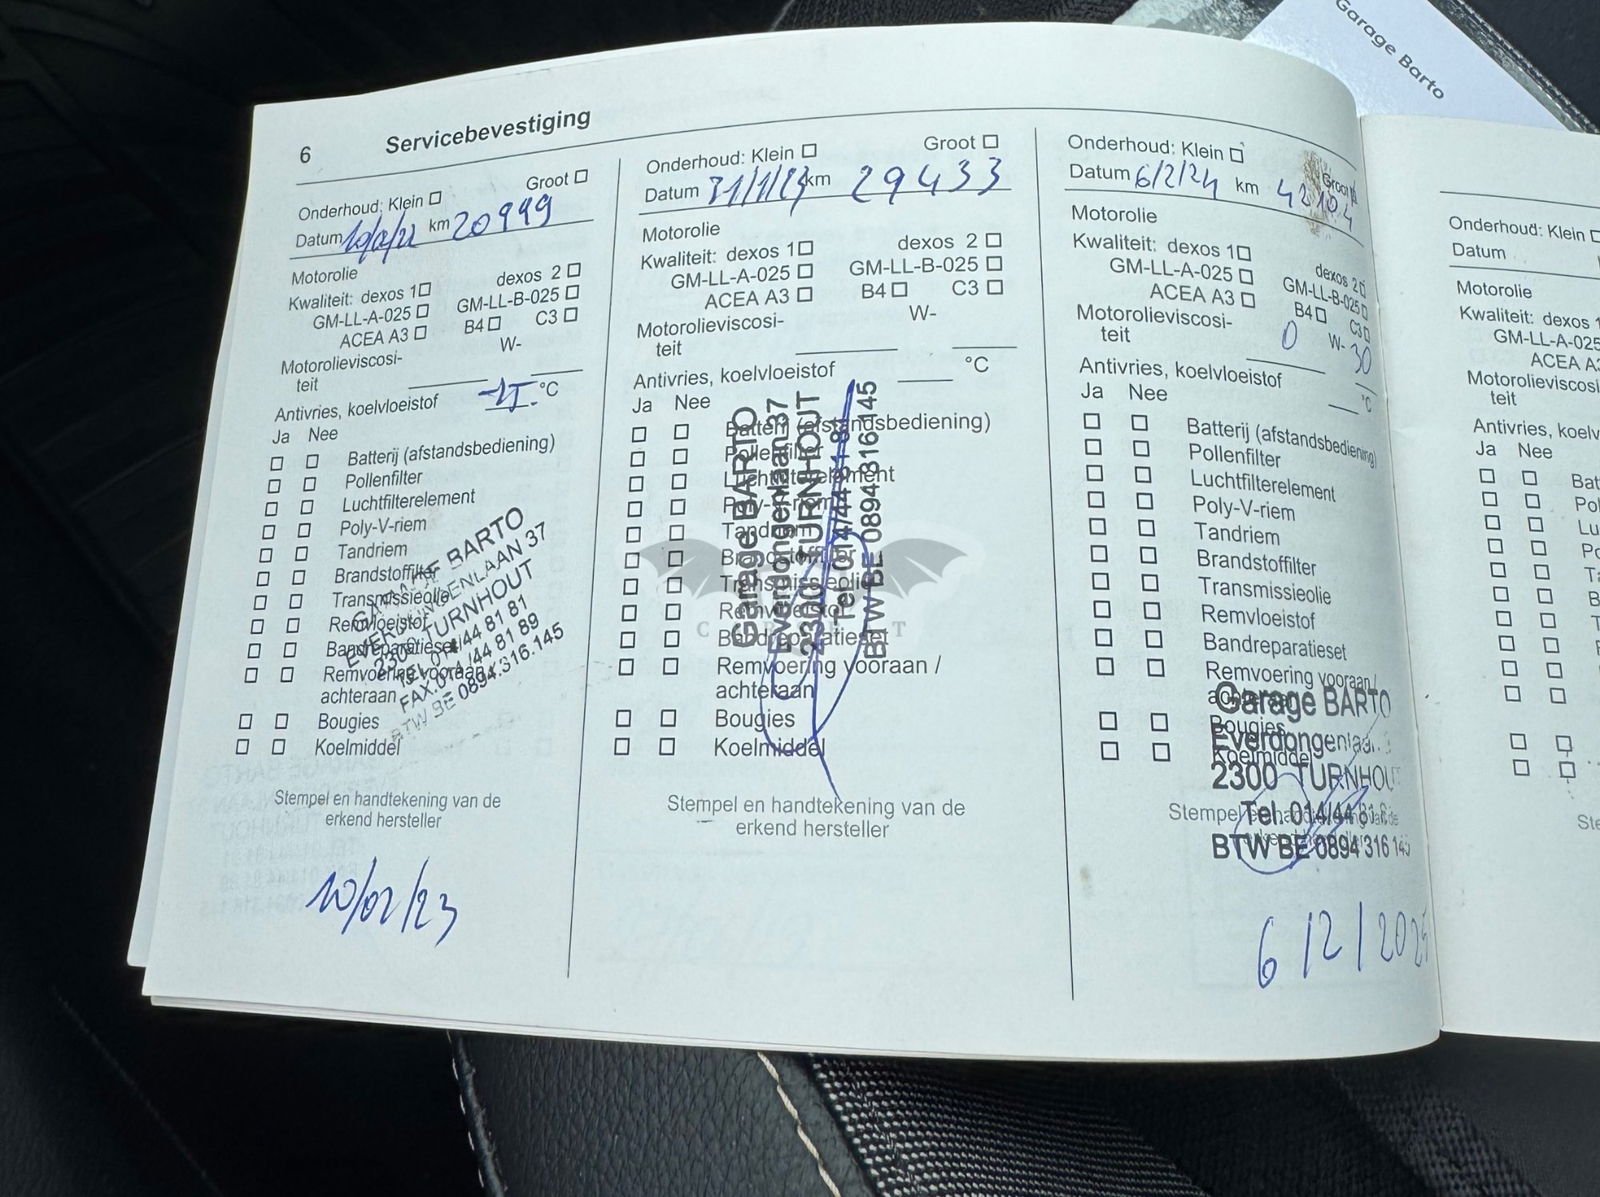 Garage Barto
6
Servicebevestiging
Onderhoud: Klein
Groot
Datum 10/2/22 km 20999
Motorolie
Kwaliteit: dexos 1
dexos 2
GM-LL-A-025
GM-LL-B-025
ACEA A3
B4
C3
Motorolieviscosi-
teit
W-
Antivries, koelvloeistof
°C
Ja Nee
Batterij (afstandsbediening)
Pollenfilter
Luchtfilterelement
Poly-V-riem
Tandriem
Brandstoffilter
Transmissieolie
Remvloeistof
Bandreparatieset
Remvoering vooraan /
achteraan
Bougies
Koelmiddel
BARTO
EVERDONGENLAAN 37
2300 TURNHOUT
TEL 014/44 81 81
FAX 014/44 81 89
BTW BE 0894.316.145
Stempel en handtekening van de
erkend hersteller
10/02/23
Onderhoud: Klein
Groot
Datum 31/1/23 km 29433
Motorolie
Kwaliteit: dexos 1
dexos 2
GM-LL-A-025
GM-LL-B-025
ACEA A3
B4
C3
Motorolieviscosi-
teit
W-
Antivries, koelvloeistof
°C
Ja Nee
Batterij (afstandsbediening)
Pollenfilter
Luchtfilterelement
Poly-V-riem
Tandriem
Brandstoffilter
Transmissieolie
Remvloeistof
Bandreparatieset
Remvoering vooraan /
achteraan
Bougies
Koelmiddel
Garage BARTO
Everdongenlaan 37
2300 TURNHOUT
Tel. 014/44 81 81
BTW BE 0894 316 145
Stempel en handtekening van de
erkend hersteller
Onderhoud: Klein
Groot
Datum 6/2/24 km 42104
Motorolie
Kwaliteit: dexos 1
dexos 2
GM-LL-A-025
GM-LL-B-025
ACEA A3
B4
C3
Motorolieviscosi-
teit
0 W- 30
Antivries, koelvloeistof
°C
Ja Nee
Batterij (afstandsbediening)
Pollenfilter
Luchtfilterelement
Poly-V-riem
Tandriem
Brandstoffilter
Transmissieolie
Remvloeistof
Bandreparatieset
Remvoering vooraan /
Bougies
Koelmiddel
Garage BARTO
2300 TURNHOU
Tel. 014/44 81 8
BTW BE 0894 316 145
Stempel
6/2/202
Onderhoud: Klein
Datum
Motorolie
Kwaliteit: dexos 1
GM-LL-A-025
ACEA A3
Motorolieviscosi
teit
Antivries, koelv
Ja Nee
Bat
Po
Lu
Po
Ta
B
T
Ste